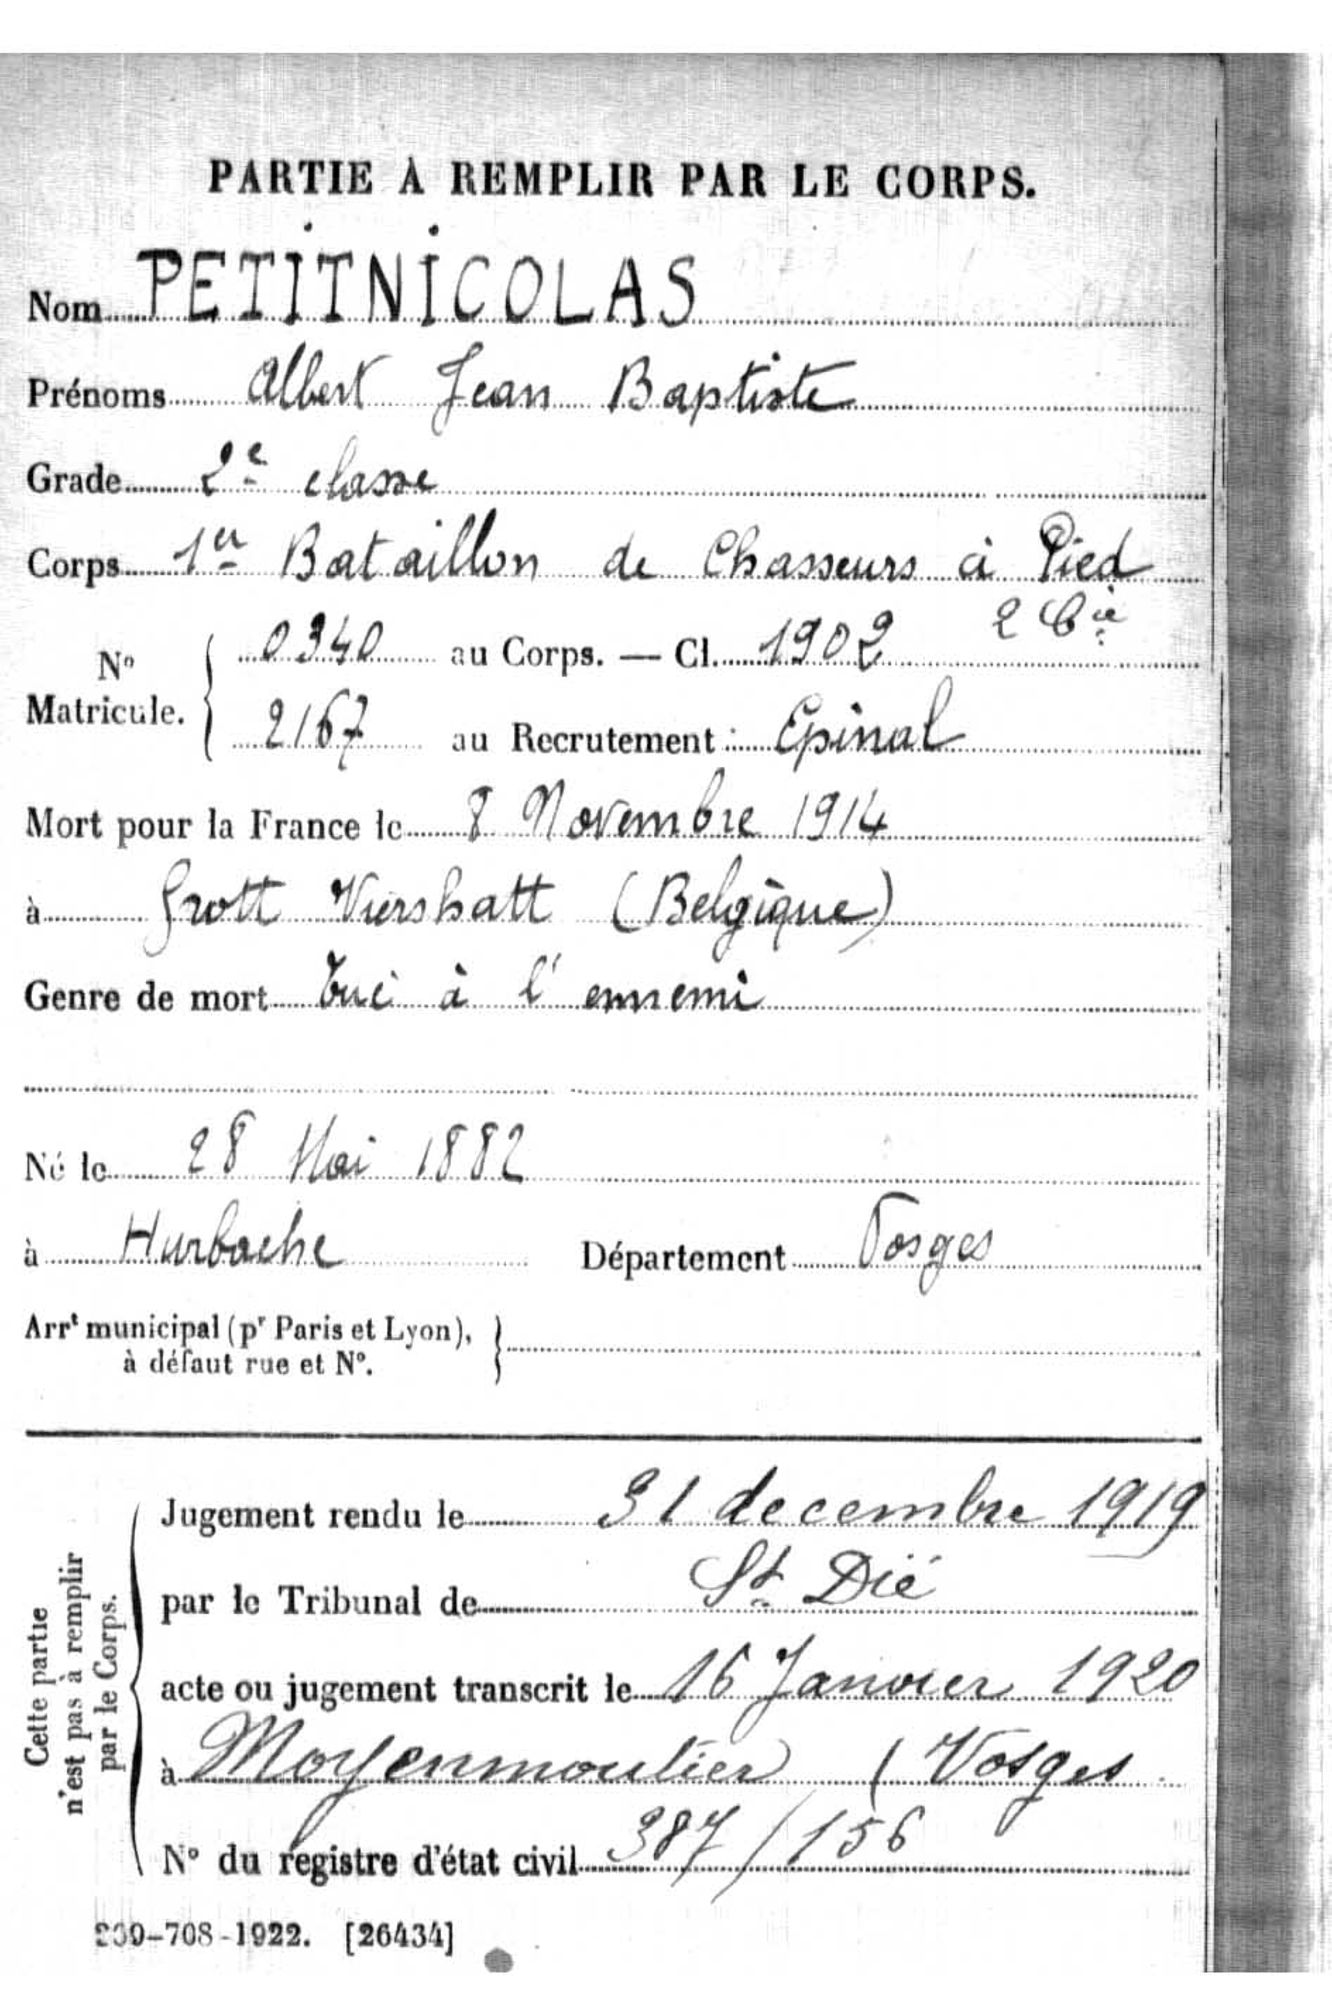 PARTIE À REMPLIR PAR LE CORPS.
Nom PETITNICOLAS
Prénoms Albert Jean Baptiste
Grade 2e classe
Corps 1er Bataillon de Chasseurs à Pied
2 Cie
No Matricule. 0340 au Corps. — Cl. 1902
2167 au Recrutement : Epinal
Mort pour la France le 8 Novembre 1914
à Grott Viershatt (Belgique)
Genre de mort Tué à l'ennemi
Né le 28 Mai 1882
à Hurbache Département Vosges
Arrt municipal (pr Paris et Lyon),
à défaut rue et No.
Cette partie
n'est pas à remplir
par le Corps.
Jugement rendu le 31 decembre 1919
par le Tribunal de St Dié
acte ou jugement transcrit le 16 Janvier 1920
à Moyenmoutier (Vosges
No du registre d'état civil 387/156
-708-1922. [26434]